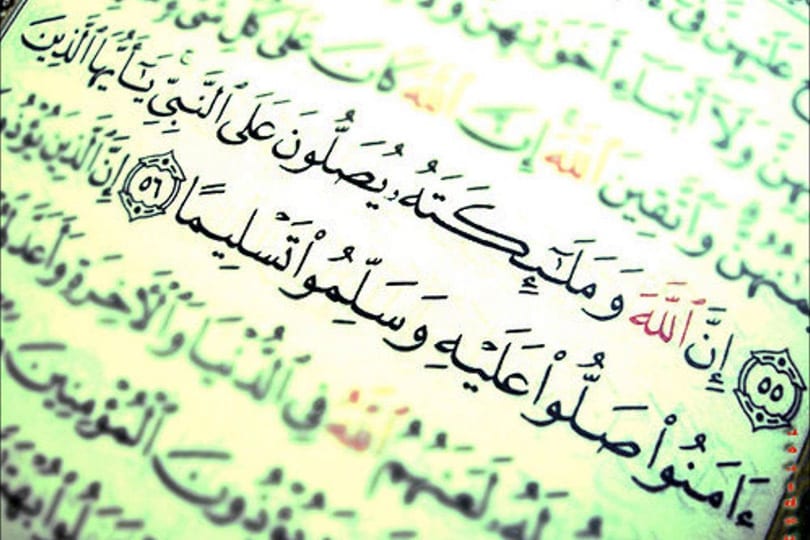 عَلَيْهِنَّ فِىٓ
وَلَآ أَبْنَآءِ أَخَوَٰتِهِنَّ وَلَا
وَٱتَّقِينَ ٱللَّهَ إِنَّ ٱللَّهَ كَانَ عَلَىٰ كُلِّ شَىْءٍ
٥٥ إِنَّ ٱللَّهَ وَمَلَـٰٓئِكَتَهُۥ يُصَلُّونَ عَلَى ٱلنَّبِىِّ يَـٰٓأَيُّهَا ٱلَّذِينَ
ءَامَنُوا۟ صَلُّوا۟ عَلَيْهِ وَسَلِّمُوا۟ تَسْلِيمًا ٥٦ إِنَّ ٱلَّذِينَ يُؤْذُونَ
لَعَنَهُمُ ٱللَّهُ فِى ٱلدُّنْيَا وَٱلْـَٔاخِرَةِ وَأَعَدَّ
يُؤْذُونَ ٱلْمُؤْمِنِينَ